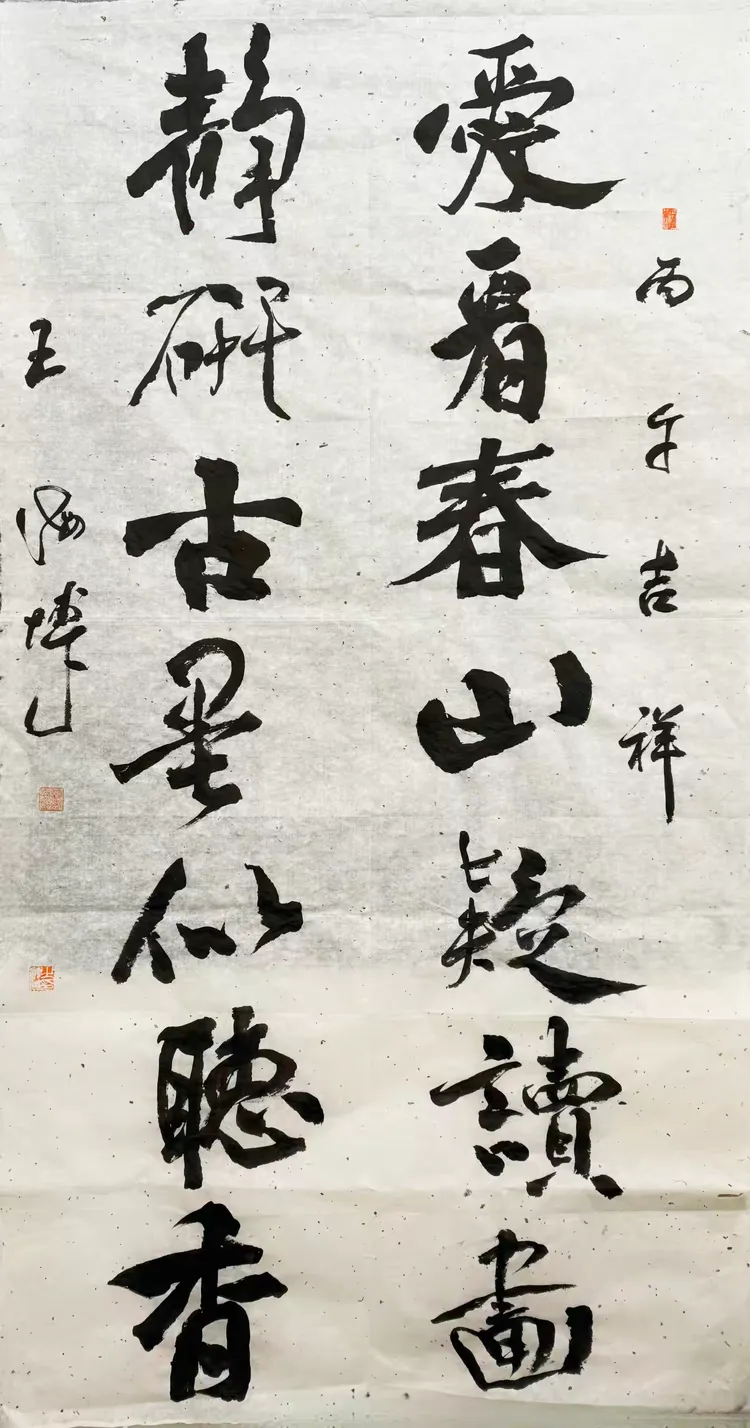 丙午吉祥
愛看春山疑讀畫
靜研古墨似聽香
王海博